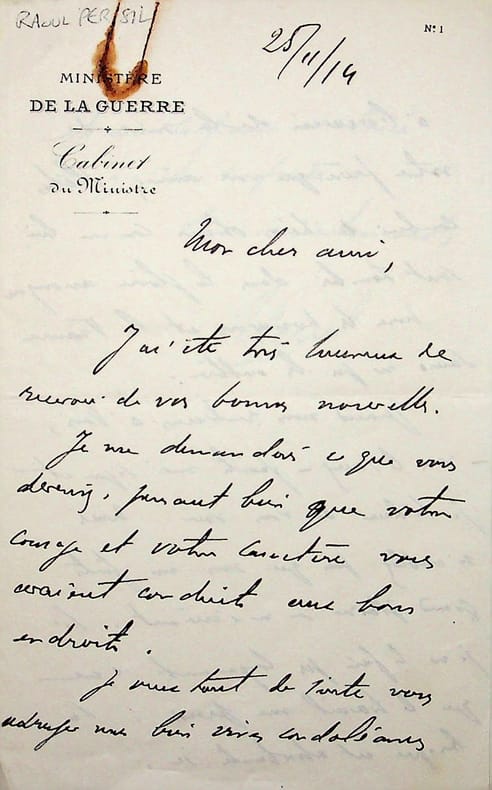 RAOUL PERSIL
Nº 1
25/11/14
MINISTÈRE
DE LA GUERRE
Cabinet
du Ministre
Mon cher ami,
J'ai été très heureux de
recevoir de vos bonnes nouvelles.
Je me demandais ce que vous
deveniez, pensant bien que votre
courage et votre caractère vous
avaient conduit aux bons
endroits.
Je veux tout de suite vous
adresser mes bien vives condoléances